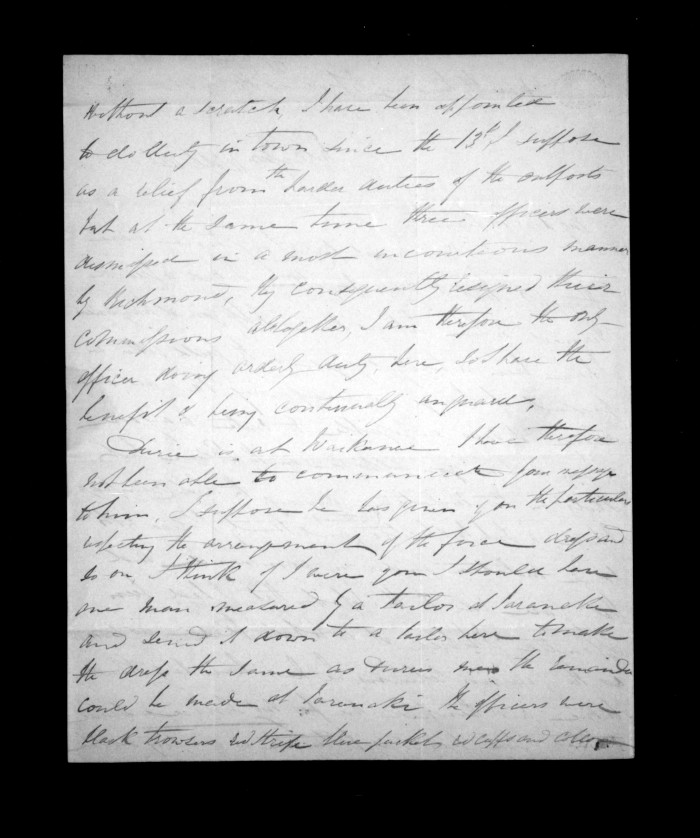 Without a scratch, I have been appointed
to do duty in town since the 13th, I suppose
as a relief from the harder duties of the outposts
but at the same time three officers were
dismissed in a most incourteous manner
by Richmond, they consequently resigned their
commissions altogether, I am therefore the only
officer doing orderly duty, here, so I have the
benefit of being continually on guard,
Durie is at Waikanae I have therefore
not been able to communicate your message
to him, I suppose he has given you the particulars
respecting the arrangement of the force dress and
so on, I think if I were you I should have
one man measured by a tailor at Taranaki
and send it down to a tailor here to make
the dress the same as Duries the remainder
could be made at Taranaki the officers wear
black trowsers red stripe blue jacket red cuffs and collar,